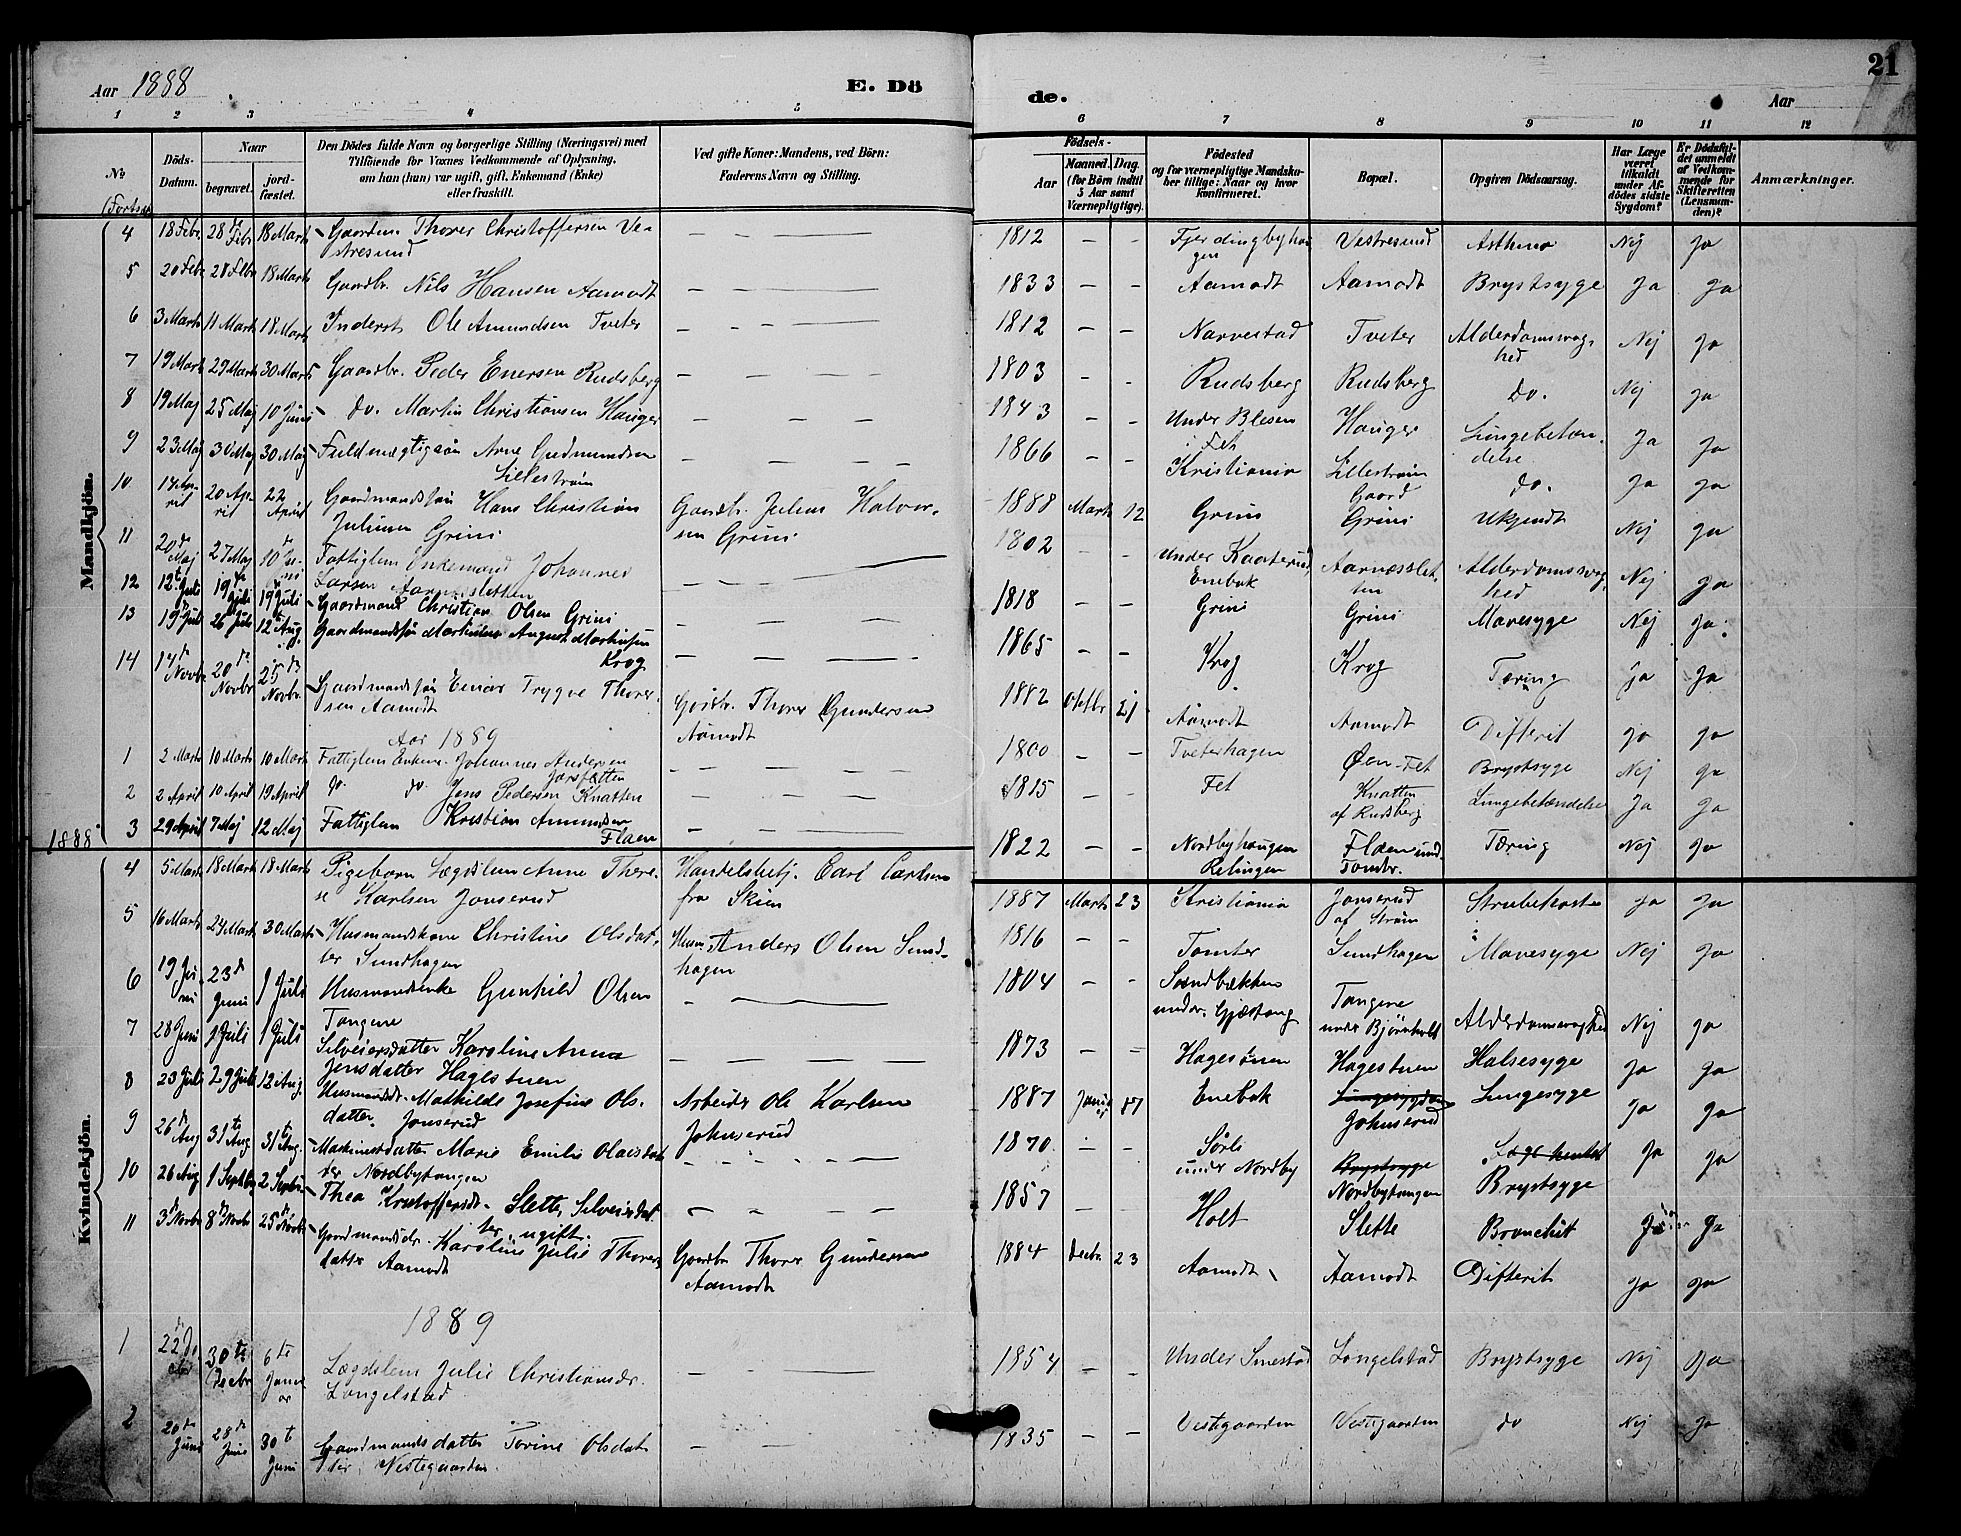 Aar 1888
E. Dö
de.
21
Aar
1 2 3 4 5 6 7 8 9 10 11 12
No
Döds-Datum.
Naar
begravet.
jord-fæstet.
Den Dödes fulde Navn og borgerlige Stilling (Næringsvei) med
Tilföiende for Voxnes Vedkommende af Oplysning,
om han (hun) var ugift, gift, Enkemand (Enke)
eller fraskilt.
Ved gifte Koner: Mandens, ved Börn:
Faderens Navn og Stilling.
Födsels-
Aar
Maaned. Dag.
(for Börn indtil
5 Aar samt
Værnepligtige).
Födested
og for værnepligtige Mandska-
ber tillige: Naar og hvor
konfirmeret.
Bopæl.
Opgiven Dödsaarsag.
Har Læge
været
tilkaldt
under Af-
dödes sidste
Sygdom?
Er Dödsfal-
det anmeldt
af Vedkom-
mende for
Skifteretten
(Lensman-
den)?
Anmærkninger.
Mandkjön.
4 18 Febr 28 Feb 18 Marts Gaardm. Thorer Christoffersen Ve-
stresund
1812 – – Fjerdingbyhau
gen Vestresund Asthma Nej Ja
5 20 Febr 28 Febr 18 Marts Gaardbr. Nils Hansen Aamodt
1833 Aamodt Aamodt Brystsyge Ja Ja
6 3 Marts 11 Marts 18 Marts Inderst Ole Amundsen Tveter
1812 – – Narvestad Tveter Alderdomssvag-
hed Nej Ja
7 19 Marts 29 Marts 30 Marts Gaardbr. Peder Enersen Rudsberg
1803 – – Rudsberg Rudsberg do. Nej Ja
8 19 Maj 25 Maj 10 Juni do. Martin Christiansen Hauger
1843 – – Under Blesen
i Fet Hauger Lungebetæn-
delse Ja Ja
9 23 Maj 30 Maj 30 Maj Fuldmægtigsön Arne Gudmundsen
Lillestrøm
1866 – – Kristiania Lillestrøm
Gaard do. Ja Ja
10 14 Ap-
ril 20 Ap-
ril 22
April Gaardmandssön Hans Christian
Juliusen Grini
Gaardbr. Julius Halvor-
sen Grini
1888 Marts 12 Grini Grini Ukjendt Nej Ja
11 20 de
Maj 27 Maj 10 de Ju-
ni Fattiglem Enkemand Johannes
Larsen Aarnæssletten
1802 – – Under Kaaterud,
Enebak Aarnæsslet-
ten Alderdomssvag-
hed Nej Ja
12 12 te Juli 19 de
Juli 19 Juli Gaardmand Christian Olsen Grini
1818 – – Grini Grini Mavesyge Nej Ja.
13 19 Juli 26 Juli 12 te Aug. Gaardmandssön Martinius August Martinsen
Krog
1865 – – Krog Krog Tæring Ja Ja
14 14 de
Novbr 20 de
Novbr 25 de
Novbr. Gaardmandssön Einar Trygve Thorer-
sen Aamodt
Gårdbr. Thorer Gundersen
Aamodt
1882 Oktbr 21 Aamodt Aamodt Difterit Ja Ja
Aar 1889
1 2 Marts 10 Marts 10 Marts Fattiglem Enkem. Johannes Andersen
1800 – – Tveterhagen Øen-Fet Brystsyge Nej Ja
2 2 April 10 April 19 April do. do. Jens Pedersen Knatten
1815 Fet Knatten
af Rudsberg Lungebetændelse Ja Ja
3 29 April 7 Maj 12 Maj Fattiglem Kristian Amundsen
Flaen
1822 – – Nordbyhaugen
Relingen Flaen und.
Tomter. Tæring Nej Ja
1888
Kvindekjön.
4 5 Marts 18 Marts 18 Marts Pigebarn Lægdslem Anne There-
se Karlsen Jonserud
Handelsbetj. Carl Carlsen
fra Skien
1887 Marts 23 Kristiania Jonserud
af Strøm Strubehoste Ja Ja
5 16 Marts 24 Marts 30 Marts Husmandskone Christine Olsdat-
ter Sundhagen
Husm. Anders Olsen Sund-
hagen
1816 – – Tomter Sundhagen Mavesyge Nej Ja
6 19 Ju-
ni 23 de
Juni 1 Juli Husmandsenke Gunhild Olsen
Tangene
1804 – – Sandbækken
under Gjæstang Tangene
under Bjørnholt Alderdomssvaghed Nej Ja
7 28 Juni 1 Juli 1 Juli Selveiersdatter Karoline Anna
Jensdatter Hagestuen
1873 – – Hagestuen Hagestuen Halsesyge Ja Ja
8 23 Juli 29 Juli 12 Aug. Husmandsdr. Mathilde Josefine Ols-
datter. Jonserud
Arbeider Ole Karlsen
Johnserud
1887 17 Enebak Johnserud Lungesyge Ja Ja
9 26 de
Aug 31 te
Aug 31 te Aug. Marie Emilie Olausdat
ter Nordbytangen
1870 – – Sørli
under Nordby Brystsyge
Nordbytangen Brystsyge Ja Ja
10 26 Aug 1 Septbr 2 Septbr. Thea Kristoffersdt. Slette, Selveierdat-
ter, ugift.
1857 – – Holt Slette Bronchit Ja Ja
11 3 de Novbr 8 de Novbr 25 de Novbr Gaardmandsdr. Karoline Julie Thorers-
datter Aamodt
Gaardbr Thorer Gundersen
Aamodt
1884 Decbr 23 Aamodt Aamodt Difterit Ja Ja
1889
1 22 de 30 te
Decbr 6 te
Janu-
ar Lægdslem Julie Christiansdr.
Longelstad
1854 – – Under Smestad Longelstad Brystsyge Nej Ja
2 20 de
Juni 28 de
Juni 30 t
Juni Gaardmandsdatter Torine Olsdat
ter, Vestegaarden.
1835 – – Vestgaarden Vestgaarden do Nej Ja